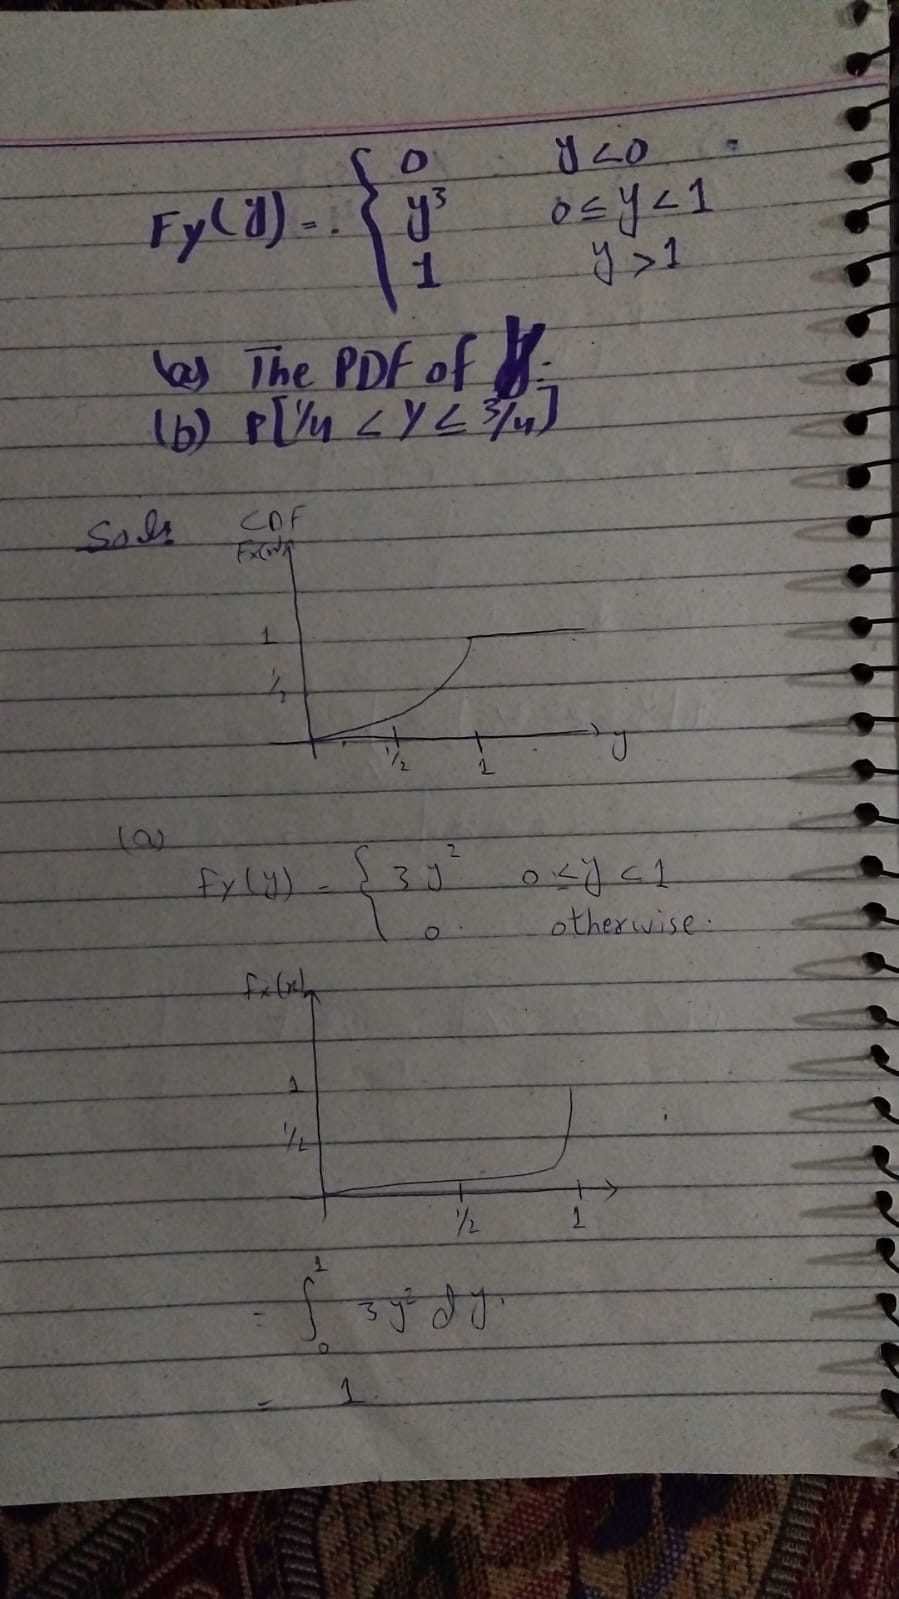 Fy(y) = { 0 y<0
y³ 0≤y<1
1 y>1
(a) The PDF of Y:
(b) P[1/4 < Y ≤ 3/4]
Soln
CDF
1
1/2
1/2 1 y
(a)
fy(y) = { 3y² 0≤y<1
0 otherwise.
fx(x)
1
1/2
1/2 1
= ∫₀¹ 3y² dy.
= 1.